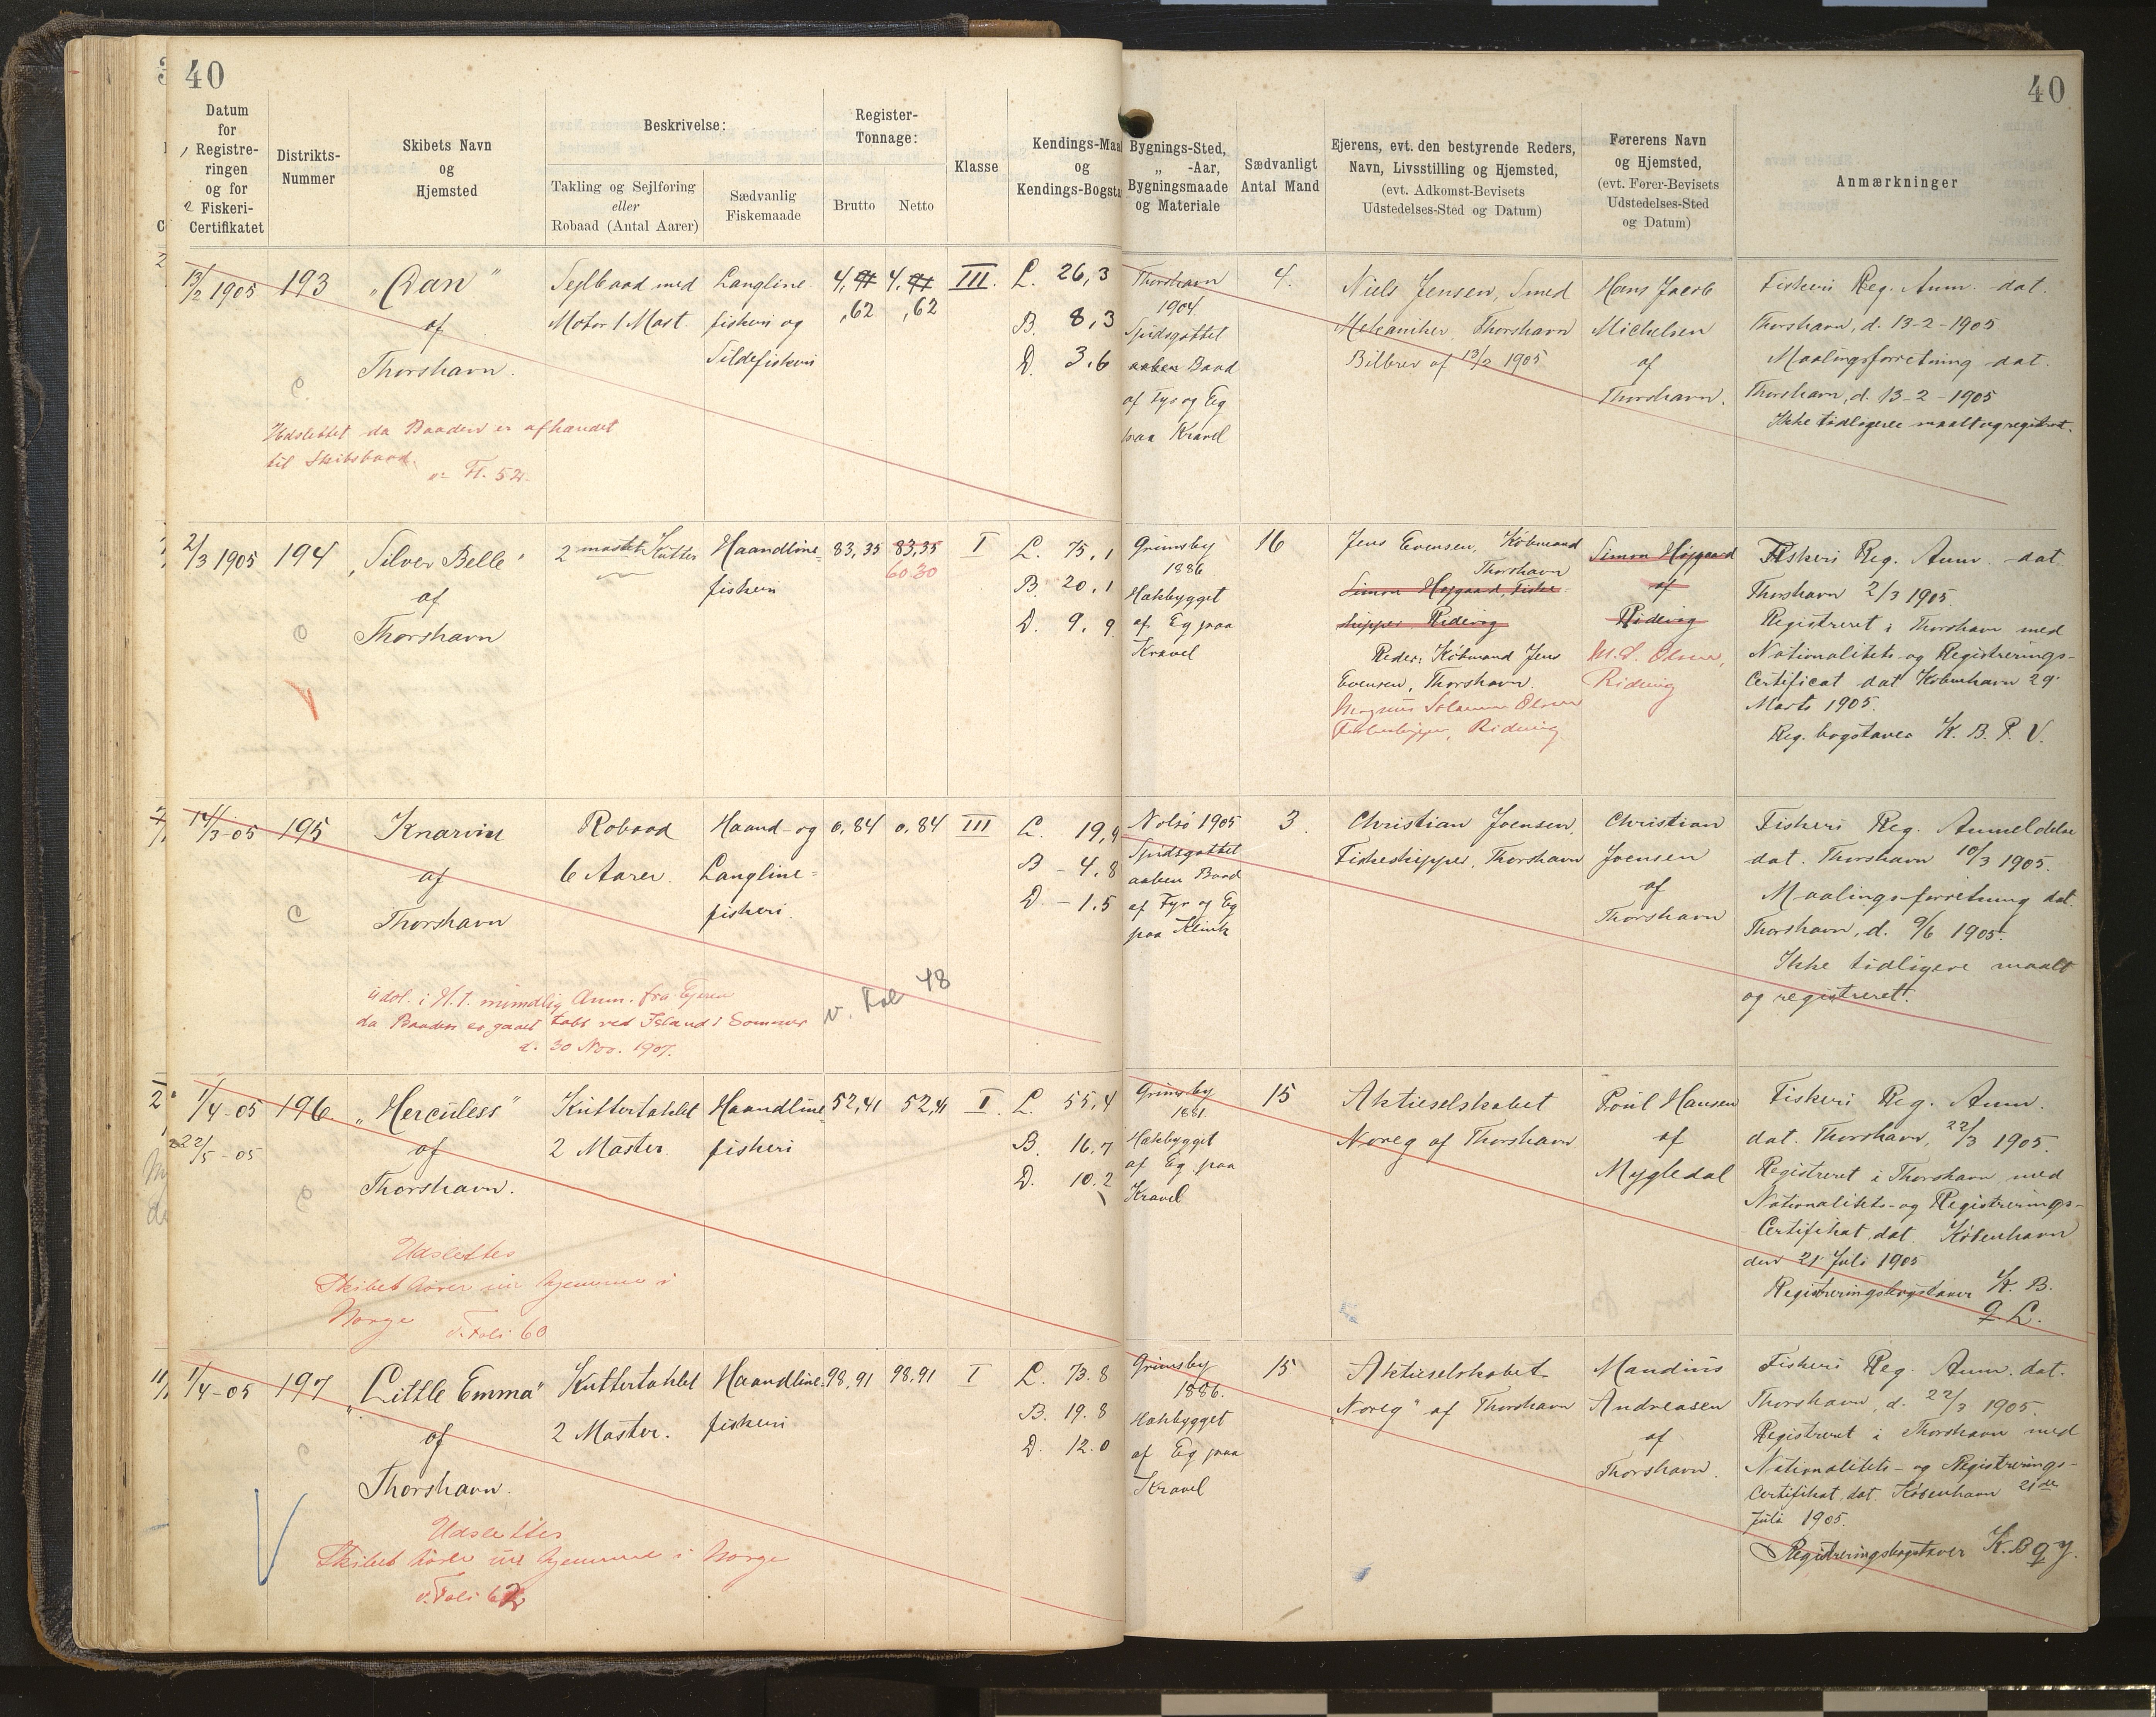 40
40
Datum
for
Registre-
ringen
og for
Fiskeri-
Certifikatet
Distrikts-
Nummer
Skibets Navn
og
Hjemsted
Beskrivelse:
Takling og Sejlføring
eller
Robaad (Antal Aarer)
Sædvanlig
Fiskemaade
Register-
Tonnage:
Brutto
Netto
Klasse
Kendings-Maa
og
Kendings-Bogsta
Bygnings-Sted,
„ -Aar,
Bygningsmaade
og Materiale
Sædvanligt
Antal Mand
Ejerens, evt. den bestyrende Reders,
Navn, Livsstilling og Hjemsted,
(evt. Adkomst-Bevisets
Udstedelses-Sted og Datum)
Førerens Navn
og Hjemsted,
(evt. Fører-Bevisets
Udstedelses-Sted
og Datum)
Anmærkninger
13/2 1905
193
„Dan"
af
Thorshavn.
Sejlbaad med
Motor 1 Mast.
Langline
fiskeri og
Sildefiskeri
4,
,62
4.
,62
III.
L. 26,3
B. 8,3
D. 3,6
Thorshavn
1904
Spidsgattet
aaben Baad
af Fyr og Eg
paa Kravel
4.
Niels Jensen, Smed
Mekaniker Thorshavn
Bilbrev af 13/2 1905
Hans Jacob
Michelsen
af
Thorshavn.
Fiskeri Reg. Anm. dat.
Thorshavn, d. 13-2-1905
Maalingsforretning dat.
Thorshavn, d. 13-2-1905
Ikke tidligere maalt og registret.
Udslettet da Baaden er afhændet
til Skibsbaad.
Fl. 52.
2/3 1905
194
„Silver Belle"
af
Thorshavn
2 mastet Kutter
Haandline-
fiskeri
83,35
83,35
60.30
I
L. 75,1
B. 20,1
D. 9,9
Grimsby
1886
Hækbygget
af Eg paa
Kravel
16
Jens Evensen, Købmand
Thorshavn
Simon Højgaard, Fiske-
skipper Ridevig
Reder: Købmand Jens
Evensen, Thorshavn.
Magnus Solamon Olsen
Fiskeskipper, Ridevig
Simon Højgaard
af
Ridevig
M. S. Olsen,
Ridevig
Fiskeri Reg. Anm. dat
Thorshavn 2/3 1905.
Registreret i Thorshavn med
Nationalitets- og Registrerings-
Certificat dat København 29
Marts 1905.
Reg. bogstaver K. B. P. V.
14/3-05
195
Knarvin
af
Thorshavn
Robaad
6 Aarer.
Haand- og
Langline-
fiskeri.
0,84
0,84
III
L. 19,9
B - 4,8
D. - 1,5
Nolsø 1905
Spidsgattet
aaben Baad
af Fyr og Eg
paa Klink
3.
Christian Joensen,
Fiskeskipper, Thorshavn
Christian
Joensen
af
Thorshavn
Fiskeri Reg. Anmeldelse
dat. Thorshavn 10/3 1905.
Maalingsforretning dat.
Thorshavn, d. 9/6 1905.
Ikke tidligere maalt
og registreret.
Udsl. i H. t. mundlig Anm. fra Ejeren
da Baaden er gaaet tabt ved Island i Sommer
d. 30 Nov. 1907.
v. Fol 48
1/4-05
22/5-05
196
„Herculess"
af
Thorshavn.
Kuttertaklet
2 Master.
Haandline-
fiskeri
52,41
52,41
I.
L. 55,4
B. 16,7
D. 10.2
Grimsby
1881
Hækbygget
af Eg paa
Kravel
15
Aktieselskabet
Noreg af Thorshavn
Poul Hansen
af
Mygledal
Fiskeri Reg. Anm.
dat. Thorshavn, 22/3 1905.
Registreret i Thorshavn med
Nationalitets- og Registrerings-
Certifikat dat. København
den 21 Juli 1905
Registreringsbogstaver K. B.
Q L.
Udslettes
Skibet hører nu hjemme i
Norge
v. Foli 60
1/4-05
197
„Little Emma"
af
Thorshavn.
Kuttertaklet
2 Master.
Haandline-
fiskeri
98,91
98,91
I
L. 73.8
B. 19.8
D. 12.0
Grimsby
1886.
Hækbygget
af Eg paa
Kravel
15
Aktieselskabet
„Noreg" af Thorshavn
Mandius
Andreasen
af
Thorshavn.
Fiskeri Reg. Anm. dat.
Thorshavn, d. 22/3 1905.
Registreret i Thorshavn med
Nationalitets- og Registrerings-
Certifikat dat. København 21de
Juli 1905.
Registreringsbogstaver K.B Q J.
Udslettes
Skibet hører nu hjemme i Norge
v. Foli 62